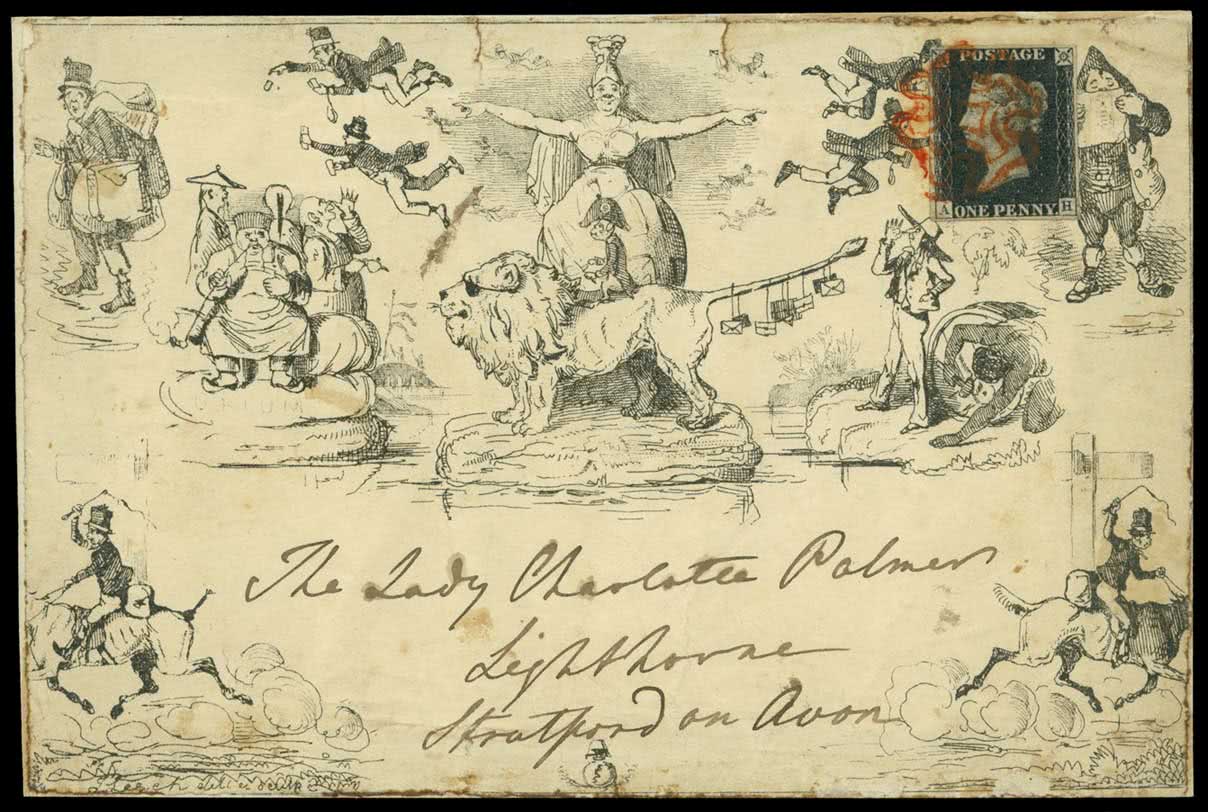 POSTAGE
A ONE PENNY H
The Lady Charlotte Palmer
Lighthorne
Stratford on Avon
Leech